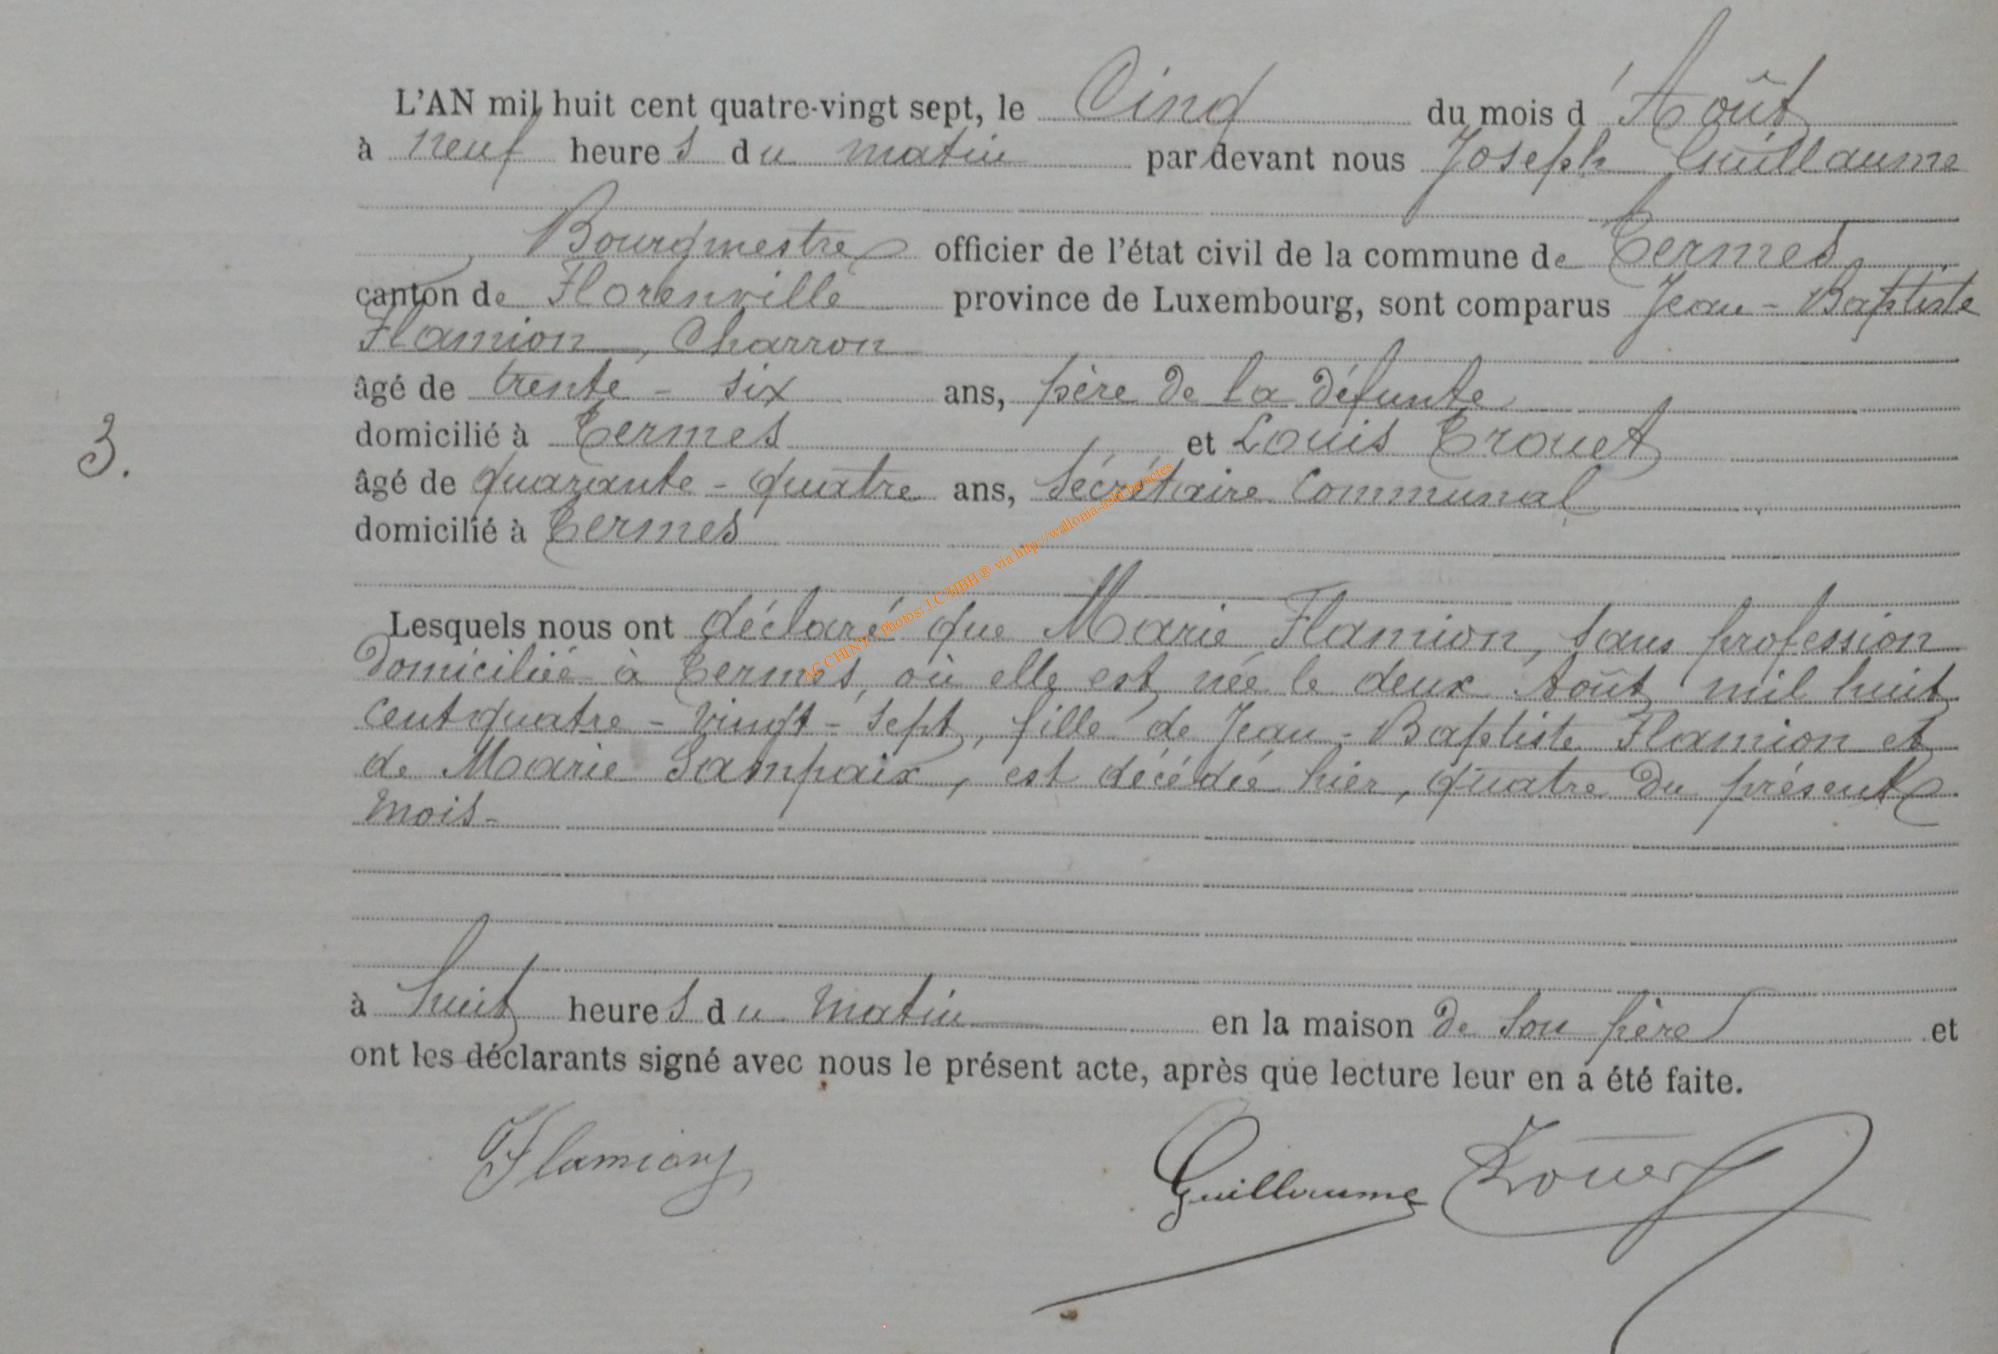 L'AN mil huit cent quatre-vingt sept, le Cinq du mois d'Août
à neuf heures du matin par devant nous Joseph Guillaume
Bourgmestre officier de l'état civil de la commune de Termes
canton de Florenville province de Luxembourg, sont comparus Jean-Baptiste
Flamion, Charron
âgé de trente-six ans, père de la défunte
domicilié à Termes et Louis Trouet
3.
âgé de quarante-quatre ans, Sécrétaire Communal
domicilié à Termes
AC CHINY - Photos: J.C/HBH® via http://wallonia-asbl.be/actes
Lesquels nous ont déclaré que Marie Flamion, sans profession
domiciliée à Termes, où elle est née le deux Août mil huit
cent quatre-vingt-sept, fille de Jean-Baptiste Flamion et
de Marie Sampaix, est décédée hier, quatre du présent
mois-
à huit heures du matin en la maison de son père et
ont les déclarants signé avec nous le présent acte, après que lecture leur en a été faite.
Flamion Guillaume Trouet